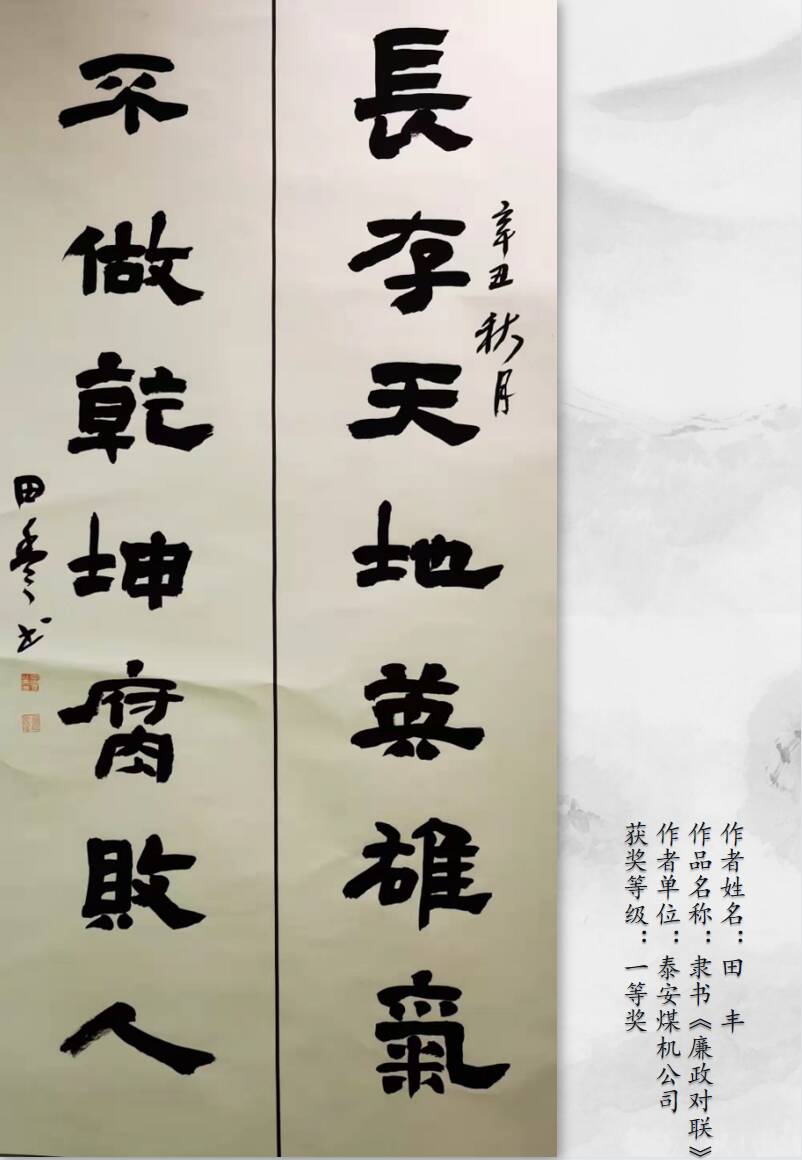 辛丑秋月
長存天地英雄氣
不做乾坤腐敗人
田 书
作者姓名：田 丰
作品名称：隶书《廉政对联》
作者单位：泰安煤机公司
获奖等级：一等奖